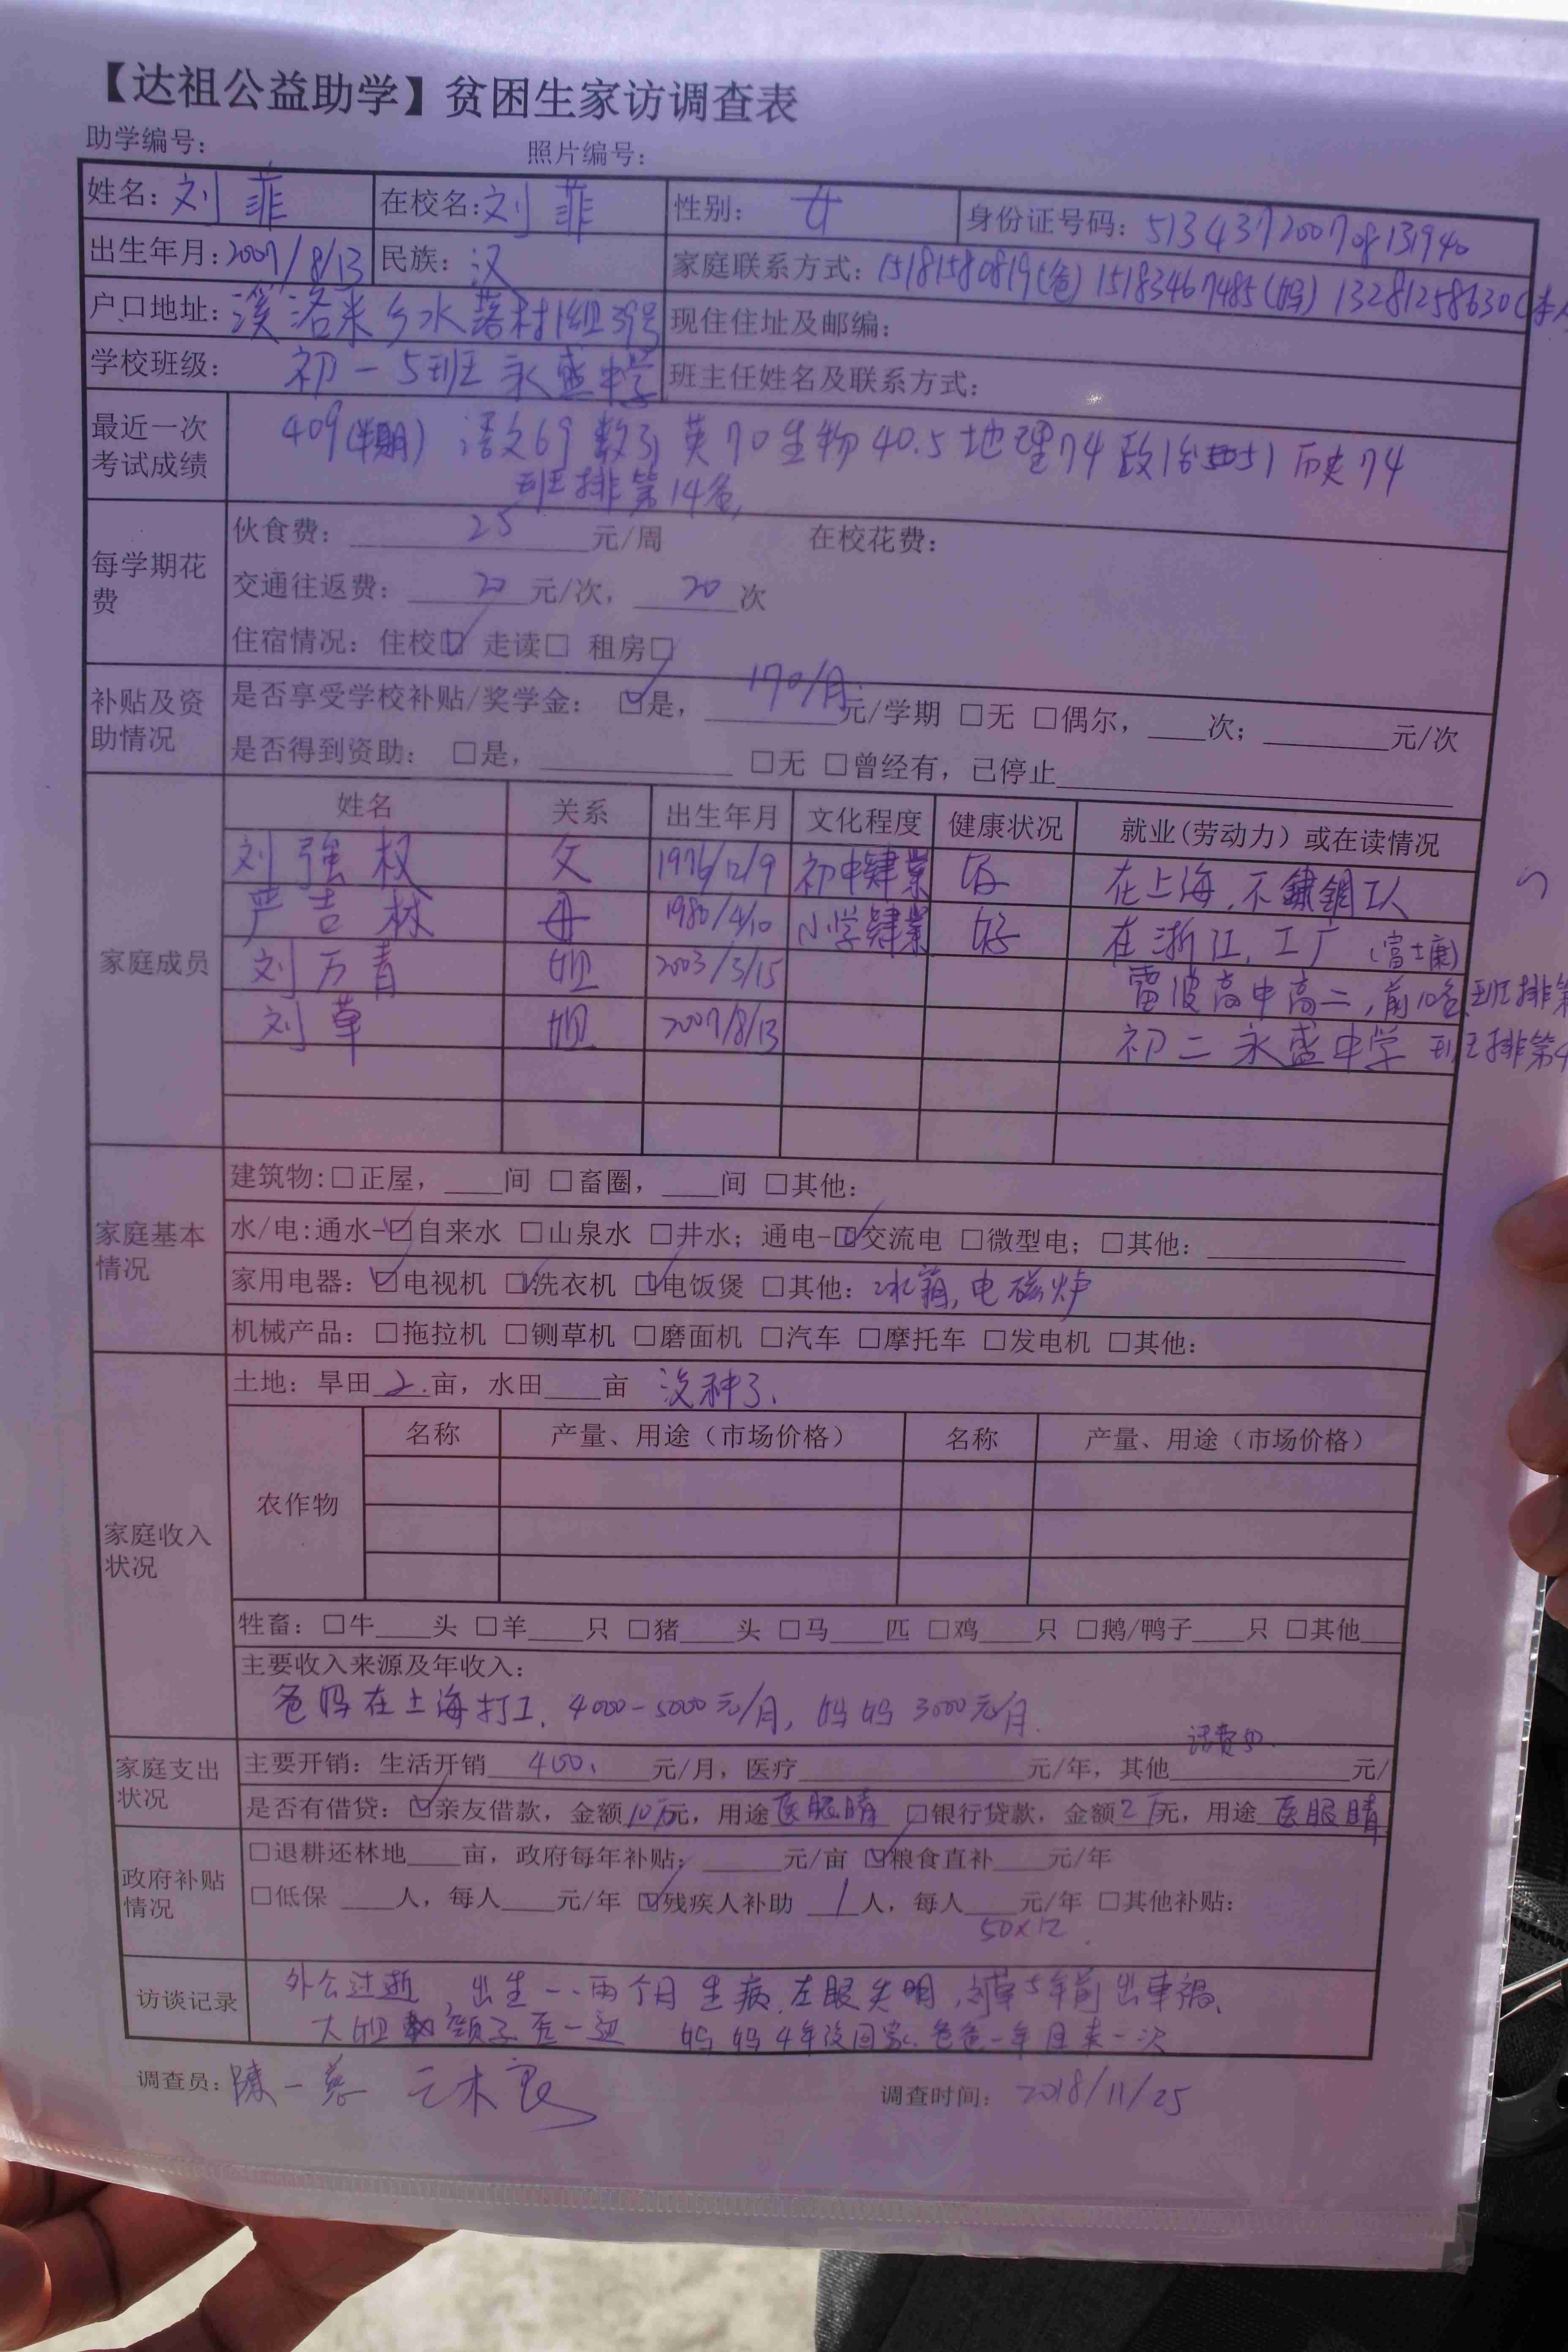 【达祖公益助学】贫困生家访调查表
助学编号： 照片编号：
姓名：刘菲 在校名：刘菲 性别：女 身份证号码：513437200708131940
出生年月：2007/8/13 民族：汉 家庭联系方式：15181580819(爸) 15183467485(妈) 13281258630(本人
户口地址：溪洛米乡水落村1组39号 现住住址及邮编：
学校班级：初一5班 永盛中学 班主任姓名及联系方式：
最近一次考试成绩 409(半期) 语文69 数31 英70 生物40.5 地理74 政治51 历史74
班排第14名
每学期花费 伙食费：25元/周 在校花费：
交通往返费：20元/次，20次
住宿情况：住校☑ 走读□ 租房□
补贴及资助情况 是否享受学校补贴/奖学金：☑是，170/月元/学期 □无 □偶尔，____次；________元/次
是否得到资助：□是，____________ □无 □曾经有，已停止____________
家庭成员 姓名 关系 出生年月 文化程度 健康状况 就业(劳动力）或在读情况
刘强权 父 1976/12/9 初中肄業 好 在上海，不鏽鋼工人
严吉林 母 1980/4/10 小学肄業 好 在浙江，工厂（富士康）
刘万青 姐 2003/3/15 雷波高中高二，前10名，班排第
刘草 姐 2007/8/13 初二 永盛中学 班排第4
家庭基本情况 建筑物:□正屋，____间 □畜圈，____间 □其他：
水/电:通水-☑自来水 □山泉水 □井水；通电-☑交流电 □微型电；□其他：________
家用电器：☑电视机 ☑洗衣机 ☑电饭煲 □其他：冰箱，电磁炉
机械产品：□拖拉机 □铡草机 □磨面机 □汽车 □摩托车 □发电机 □其他：
家庭收入状况 土地：旱田2.亩，水田____亩 没种了.
农作物 名称 产量、用途（市场价格） 名称 产量、用途（市场价格）
牲畜：□牛____头 □羊____只 □猪____头 □马____匹 □鸡____只 □鹅/鸭子____只 □其他___
主要收入来源及年收入：
爸妈在上海打工，4000-5000元/月，妈妈3000元/月.
家庭支出状况 主要开销：生活开销400.元/月，医疗________元/年，其他话费50.元/
是否有借贷：☑亲友借款，金额10万元，用途医眼睛 □银行贷款，金额2万元，用途医眼睛
政府补贴情况 □退耕还林地____亩，政府每年补贴：____元/亩 ☑粮食直补____元/年
□低保 ____人，每人____元/年 ☑残疾人补助 1人，每人____元/年 □其他补贴：
50×12.
访谈记录 外公过逝，出生一.两个月生病，左眼失明，刘草5年前出車禍，
大姐 额子 一边 妈妈4年没回家.爸爸一年回来一次
调查员：陳一慈 木良 调查时间：2018/11/25